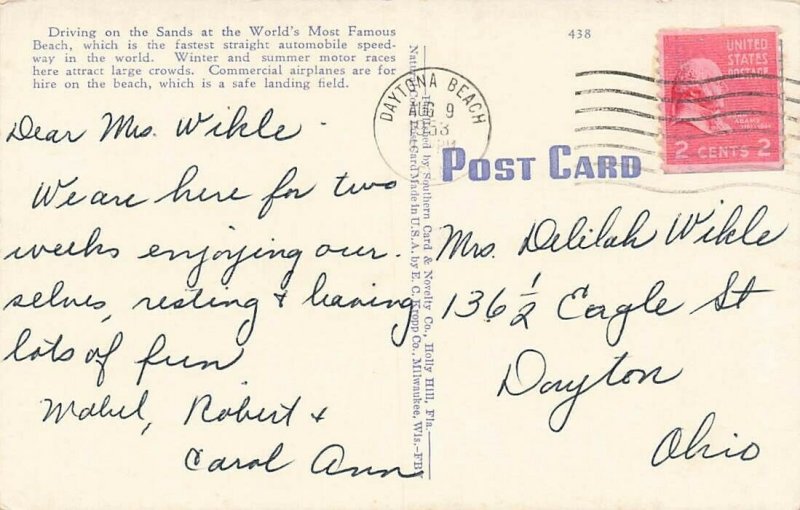 Driving on the Sands at the World's Most Famous
Beach, which is the fastest straight automobile speed-
way in the world. Winter and summer motor races
here attract large crowds. Commercial airplanes are for
hire on the beach, which is a safe landing field.
438
DAYTONA BEACH
AUG 9
UNITED
STATES
POSTAGE
2 CENTS 2
POST CARD
Dear Mrs. Wikle -
We are here for two
weeks enjoying our-
selves, resting & having
lots of fun
Mabel, Robert &
Carol Ann
Published by Southern Card & Novelty Co., Holly Hill, Fla.
Post Card Made in U.S.A. by E. C. Kropp Co., Milwaukee, Wis.-FB
Mrs. Delilah Wikle
136 1/2 Eagle St
Dayton
Ohio